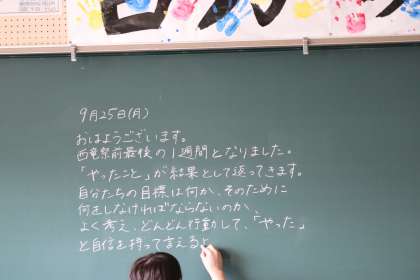 9月25日(月)
おはようございます。
西竜祭前最後の1週間となりました。
「やったこと」が結果として返ってきます。
自分たちの目標は何か、そのために
何をしなければならないのか、
よく考え、どんどん行動して、「やった」
と自信を持って言えるよ